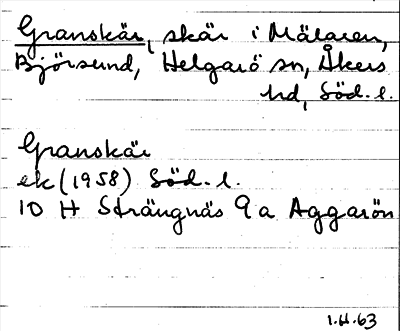 Granskär, skär i Mälaren,
Björsund, Helgarö sn, Åkers
hd, Söd. l.
Granskär
ek (1958) Söd. l.
10 H Strängnäs 9 a Aggarön
1.H.63